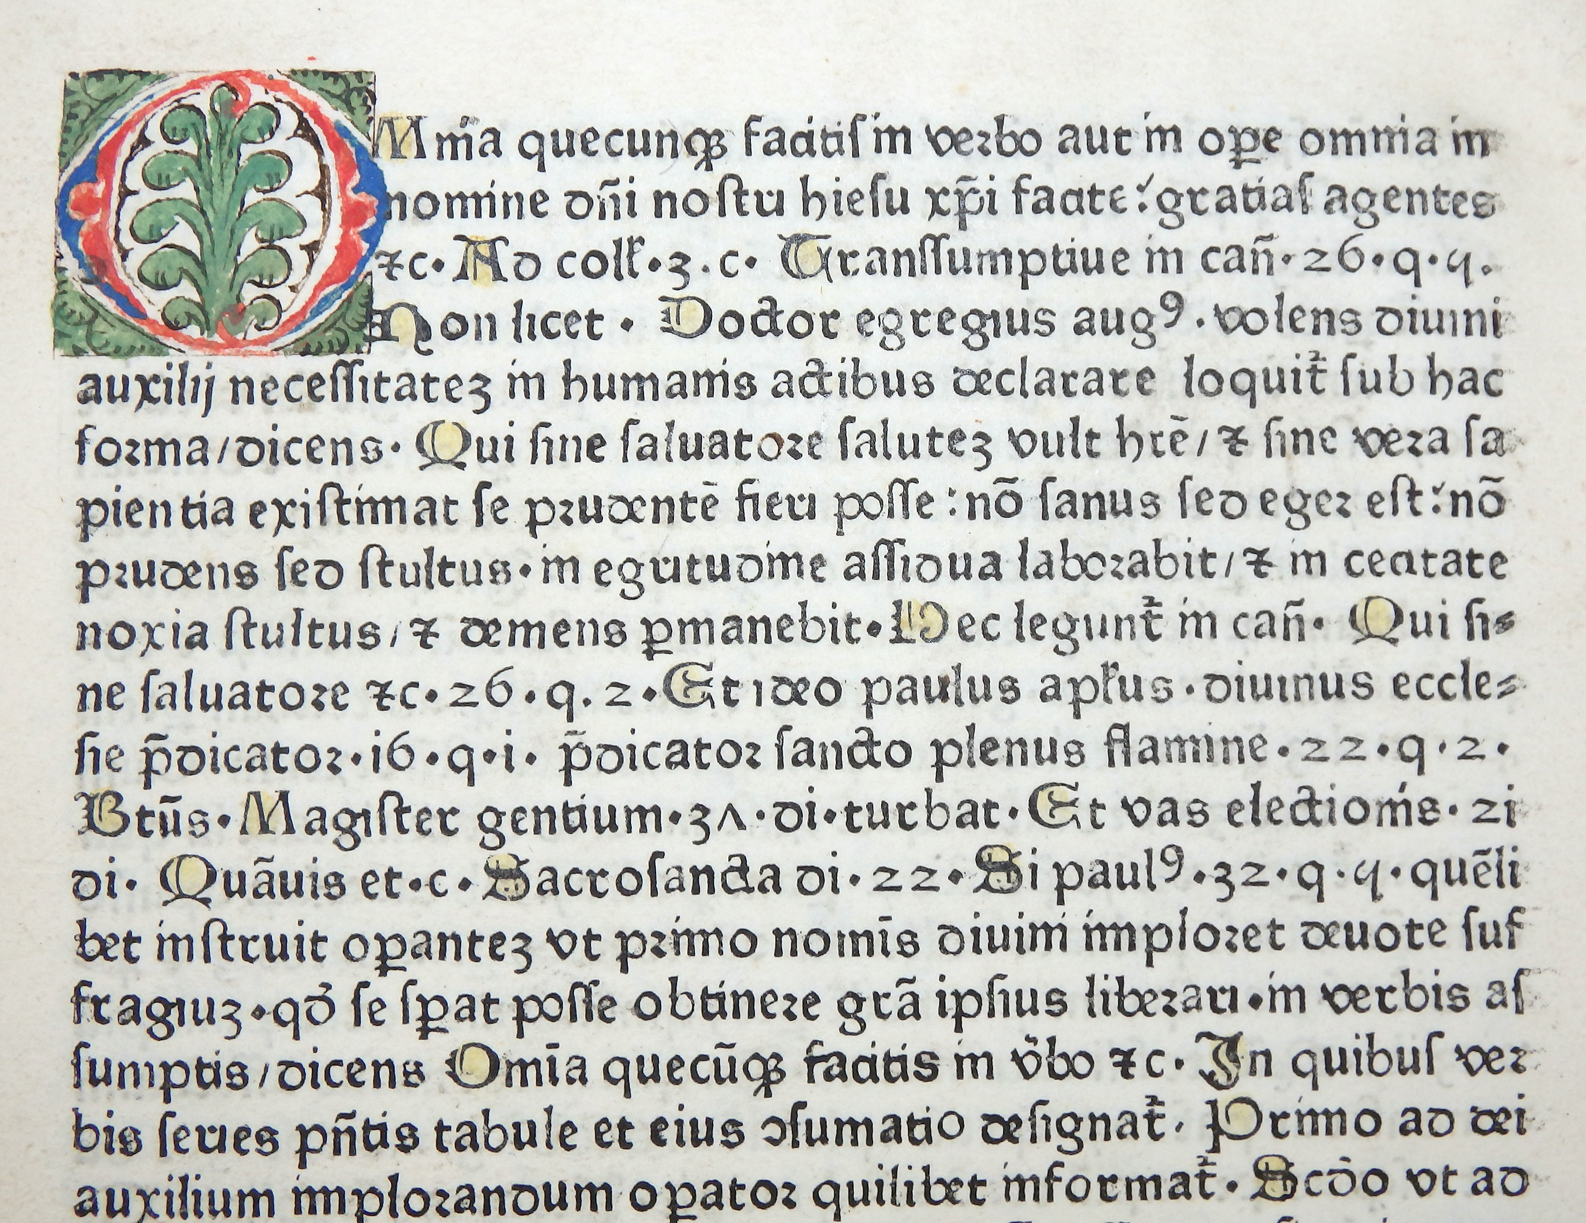 OMnia quecunqꝫ facitiſ in verbo aut in oꝑe omnia in
nomine dn̄i noſtri hieſu xp̄i facite: gratiaſ agentes
⁊c. Ad coll̓.3.c. Tranſſumptiue in can̄.26.q.ꝗ.
Non licet. Doctor egregius augꝰ. volens diuini
auxilij neceſſitateꝫ in humanis actibus declarare loquit᷑ ſub hac
forma/dicens. Qui ſine ſaluatore ſaluteꝫ vult hr̄e/⁊ ſine vera ſa
pientia exiſtimat ſe prudentē fieri poſſe: nō ſanus ſed eger eſt: nō
prudens ſed ſtultus. in egritudine aſſidua laborabit/⁊ in cecitate
noxia ſtultus/⁊ demens ꝑmanebit. Hec legunt᷑ in can̄. Qui ſi⸗
ne ſaluatore ⁊c.26.q.2. Et ideo paulus apl̓us.diuinus eccle⸗
ſie p̄dicator.i6.q.i. p̄dicator ſancto plenus flamine.22.q.2.
Btūs. Magiſter gentium.3ʌ.di.turbat. Et vas electionis.2i
di. Quāuis et.c. Sacroſancta di.22. Si paulꝰ.32.q.ꝗ.quēli
bet inſtruit oꝑanteꝫ vt primo nomīs diuini imploret deuote ſuf
fragiuꝫ.qď ſe ſꝑat poſſe obtinere grā ipſius liberari.in verbis aſ
ſumptis/dicens Omīa quecūqꝫ facitis in v̓bo ⁊c. In quibuſ ver
bis ſeries pn̄tis tabule et eius ↄſumatio deſignat᷑. Primo ad dei
auxilium implorandum oꝑator quilibet informat᷑. Scd̄o vt ad